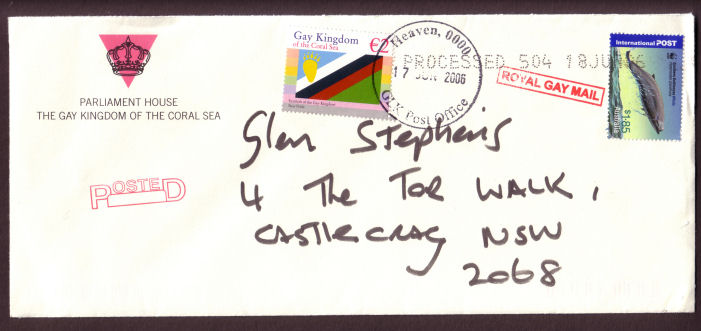 PARLIAMENT HOUSE
THE GAY KINGDOM OF THE CORAL SEA
POSTED
Gay Kingdom
of the Coral Sea
€2
Heaven, 0000
17 JUN 2006
GK Post Office
PROCESSED 504 18JUN06
ROYAL GAY MAIL
International POST
$1.85
Australia
Glen Stephens
4 The TOR WALK,
CASTLECRAG NSW
2068